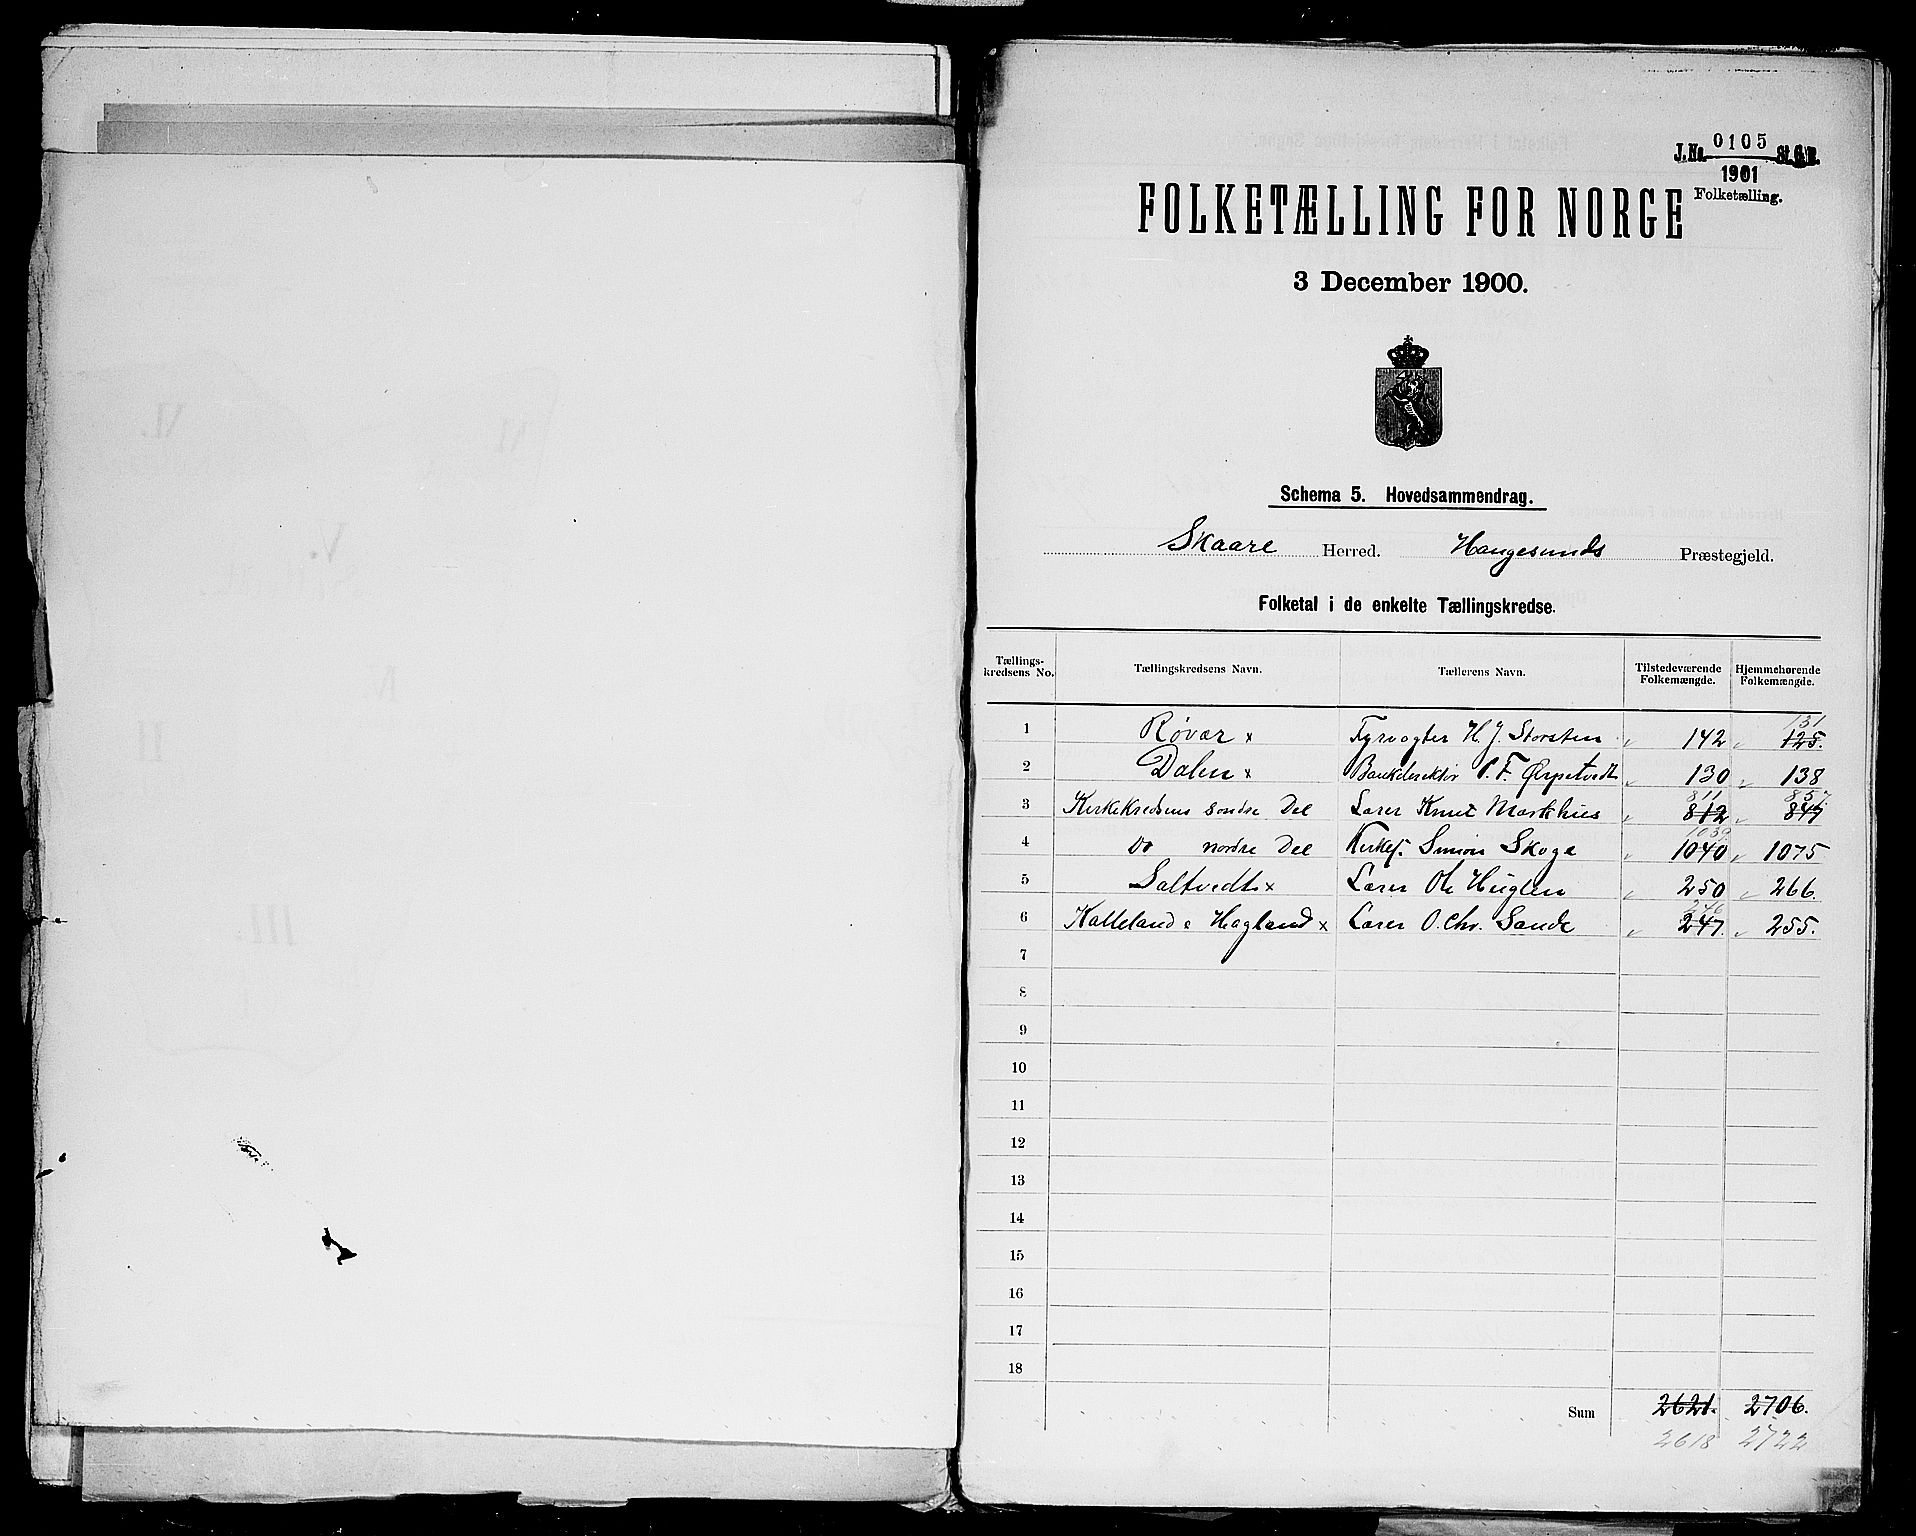 J.No. 0105 St.C.B.
1901
Folketælling.
FOLKETÆLLING FOR NORGE
3 December 1900.
Schema 5. Hovedsammendrag.
Skaare Herred. Haugesunds Præstegjeld.
Folketal i de enkelte Tællingskredse.
Tællings-kredsens No. Tællingskredsens Navn. Tællerens Navn. Tilstedeværende Folkemængde. Hjemmehørende Folkemængde.
131
1 Røvær x Fyrvogter H. J. Storsten 142 125.
2 Dalen x Bankdirektør P. F. Ørpetvedt 130 138
811 857
3 Kirkekredsens søndre Del Lærer Knut Markhus 812 847
1039
4 Do nordre Del Kirkes. Simon Skoge 1040 1075
5 Saltvedt x Lærer Ole Huglen 250 266.
246
6 Kalleland o Hagland x Lærer O. Chr. Sande 247. 255.
7
8
9
10
11
12
13
14
15
16
17
18
Sum 2621. 2706.
2618 2722